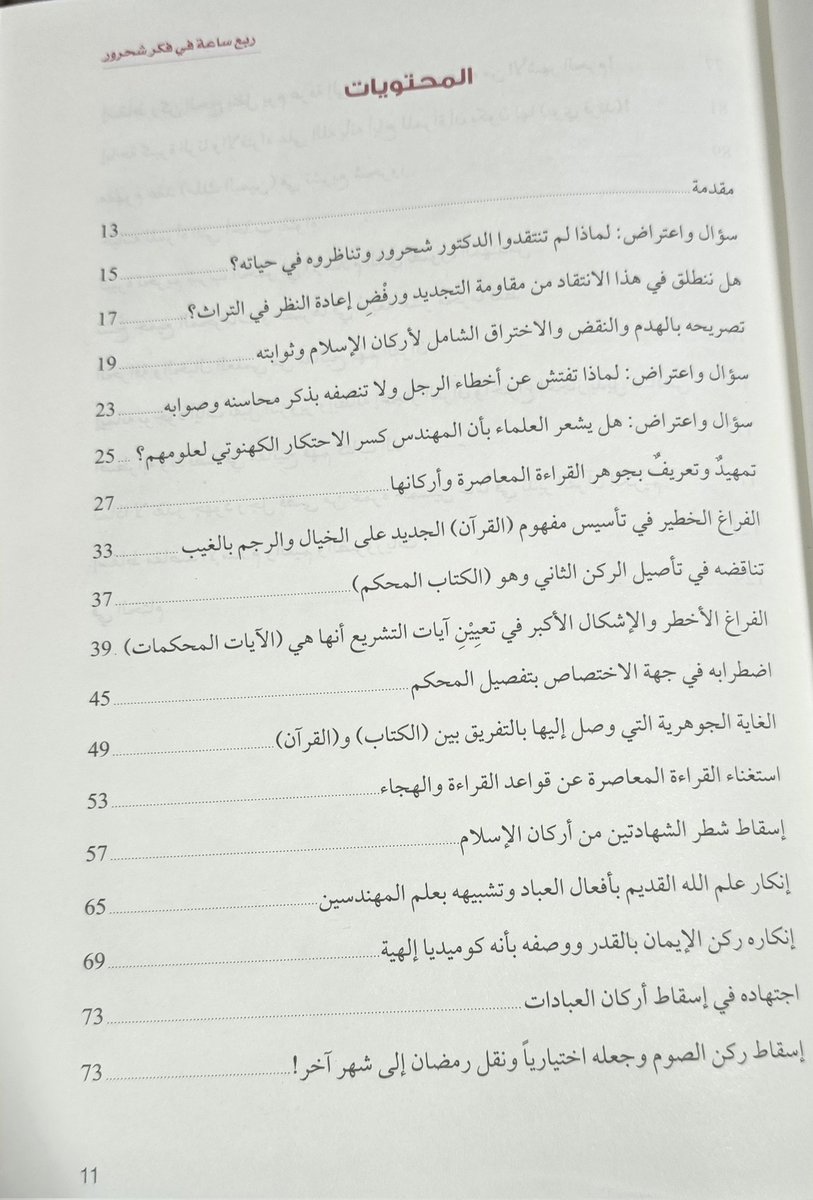 ربع ساعة في فكر شحرور
المحتويات
مقدمة 13
سؤال واعتراض: لماذا لم تنتقدوا الدكتور شحرور وتناظروه في حياته؟ 15
هل ننطلق في هذا الانتقاد من مقاومة التجديد ورفْضِ إعادة النظر في التراث؟ 17
تصريحه بالهدم والنقض والاختراق الشامل لأركان الإسلام وثوابته 19
سؤال واعتراض: لماذا تفتش عن أخطاء الرجل ولا تنصفه بذكر محاسنه وصوابه 23
سؤال واعتراض: هل يشعر العلماء بأن المهندس كسر الاحتكار الكهنوتي لعلومهم؟ 25
تمهيدٌ وتعريفٌ بجوهر القراءة المعاصرة وأركانها 27
الفراغ الخطير في تأسيس مفهوم (القرآن) الجديد على الخيال والرجم بالغيب 33
تناقضه في تأصيل الركن الثاني وهو (الكتاب المحكم) 37
الفراغ الأخطر والإشكال الأكبر في تعيِيْنِ آيات التشريع أنها هي (الآيات المحكمات) 39
اضطرابه في جهة الاختصاص بتفصيل المحكم 45
الغاية الجوهرية التي وصل إليها بالتفريق بين (الكتاب) و(القرآن) 49
استغناء القراءة المعاصرة عن قواعد القراءة والهجاء 53
إسقاط شطر الشهادتين من أركان الإسلام 57
إنكار علم الله القديم بأفعال العباد وتشبيهه بعلم المهندسين 65
إنكاره ركن الإيمان بالقدر ووصفه بأنه كوميديا إلهية 69
اجتهاده في إسقاط أركان العبادات 73
إسقاط ركن الصوم وجعله اختيارياً ونقل رمضان إلى شهر آخر! 73
11